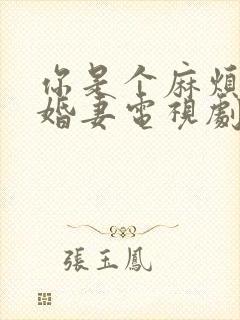 你是个麻煩
婚妻電視劇
張玉鳳